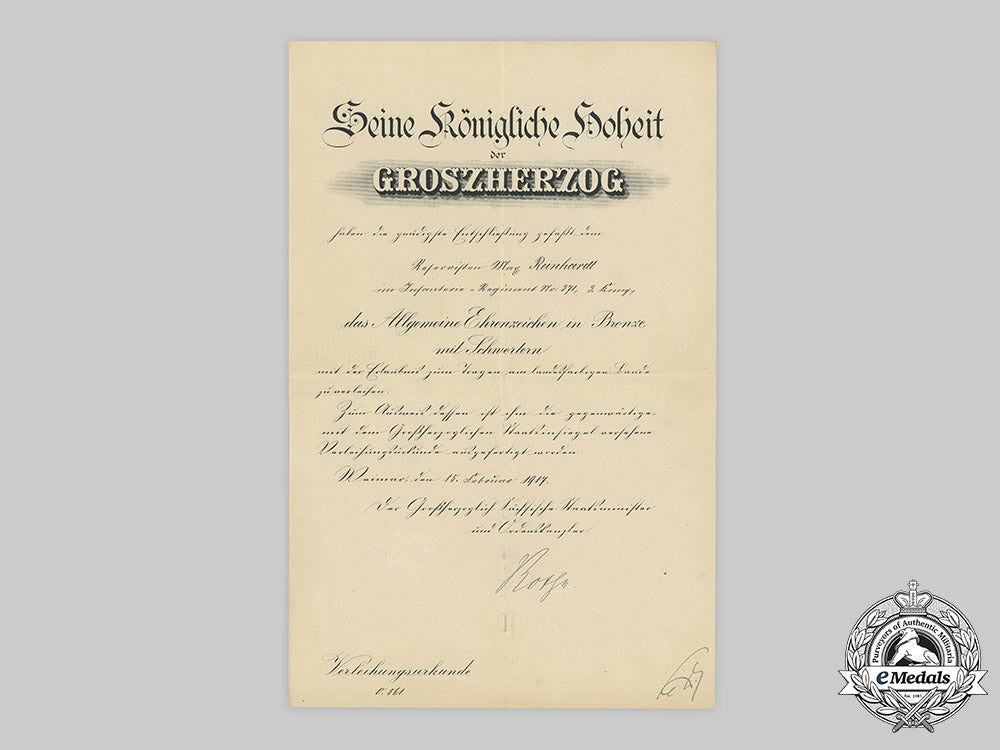 Seine Königliche Hoheit
der
GROSZHERZOG
haben die gnädigste Entschließung gefaßt, dem
Reservisten Max Reinhardt
im Infanterie-Regiment Nr. 371, 3. Komp.,
das Allgemeine Ehrenzeichen in Bronze
mit Schwertern
mit der Erlaubnis zum Tragen am landesfarbigen Bande
zu verleihen.
Zum Ausweis dessen ist ihm die gegenwärtige,
mit dem Großherzoglichen Staatsinsiegel versehene
Verleihungsurkunde ausgefertigt worden.
Weimar, den 15. Februar 1917.
Der Großherzoglich Sächsische Staatsminister
und Ordenskanzler.
Rothe.
Verleihungsurkunde
Purveyors of Authentic Militaria
eMedals